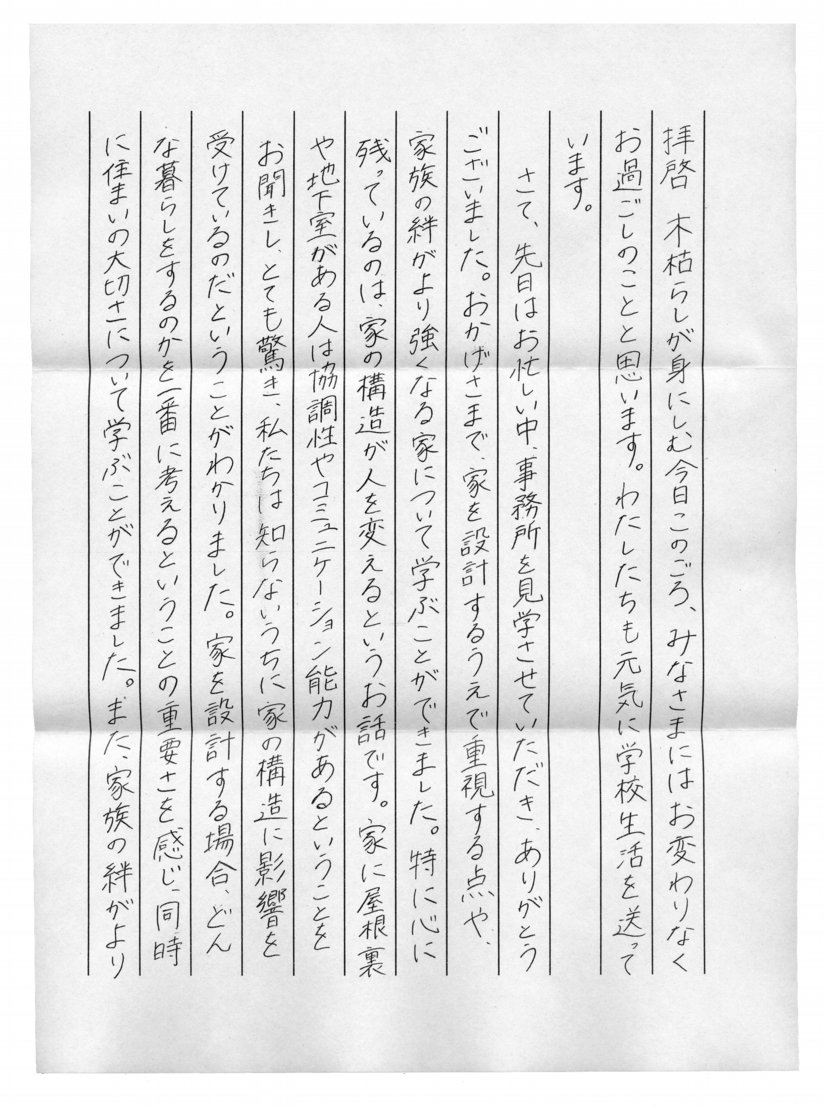 拝啓　木枯らしが身にしむ今日このごろ、みなさまにはお変わりなく
お過ごしのことと思います。わたしたちも元気に学校生活を送って
います。
さて、先日はお忙しい中、事務所を見学させていただき、ありがとう
ございました。おかげさまで、家を設計するうえで重視する点や、
家族の絆がより強くなる家について学ぶことができました。特に心に
残っているのは、家の構造が人を変えるというお話です。家に屋根裏
や地下室がある人は協調性やコミュニケーション能力があるということを
お聞きし、とても驚き、私たちは知らないうちに家の構造に影響を
受けているのだということがわかりました。家を設計する場合、どん
な暮らしをするのかを一番に考えるということの重要さを感じ、同時
に住まいの大切さについて学ぶことができました。また、家族の絆がより